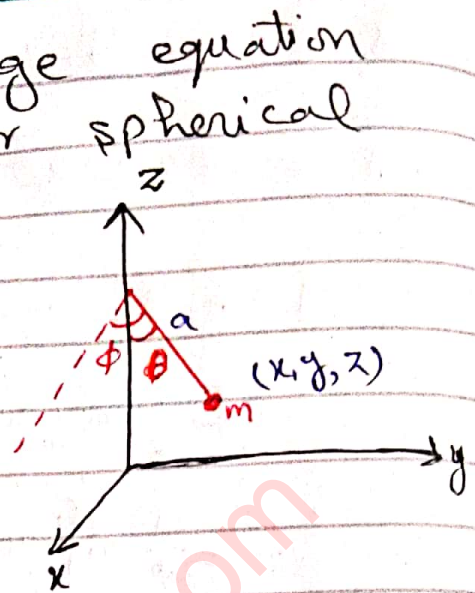 ge equation
r spherical
z
a
ϕ θ
(x,y,z)
m
y
x
om